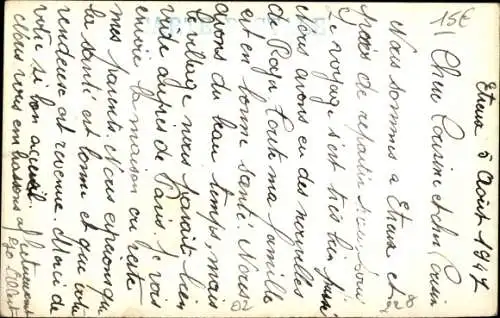 15€
Etreux 5 Août 1947
Cher Cousine et cher Cousin
Nous sommes a Etreux et
prêts de repartir
Le voyage s'est très bien passé
Nous avons eu des nouvelles
de Papa toute ma famille
est en bonne santé. Nous
avons du beau temps, mais
le village nous parait bien
vide auprès de Paris. Je vois
encore la maison ou reste
mes parents. Nous espérons que
la santé est bonne et que votre
vendeuse est revenue. Merci de
votre si bon accueil
Nous vous embrassons affectueusement
02
28